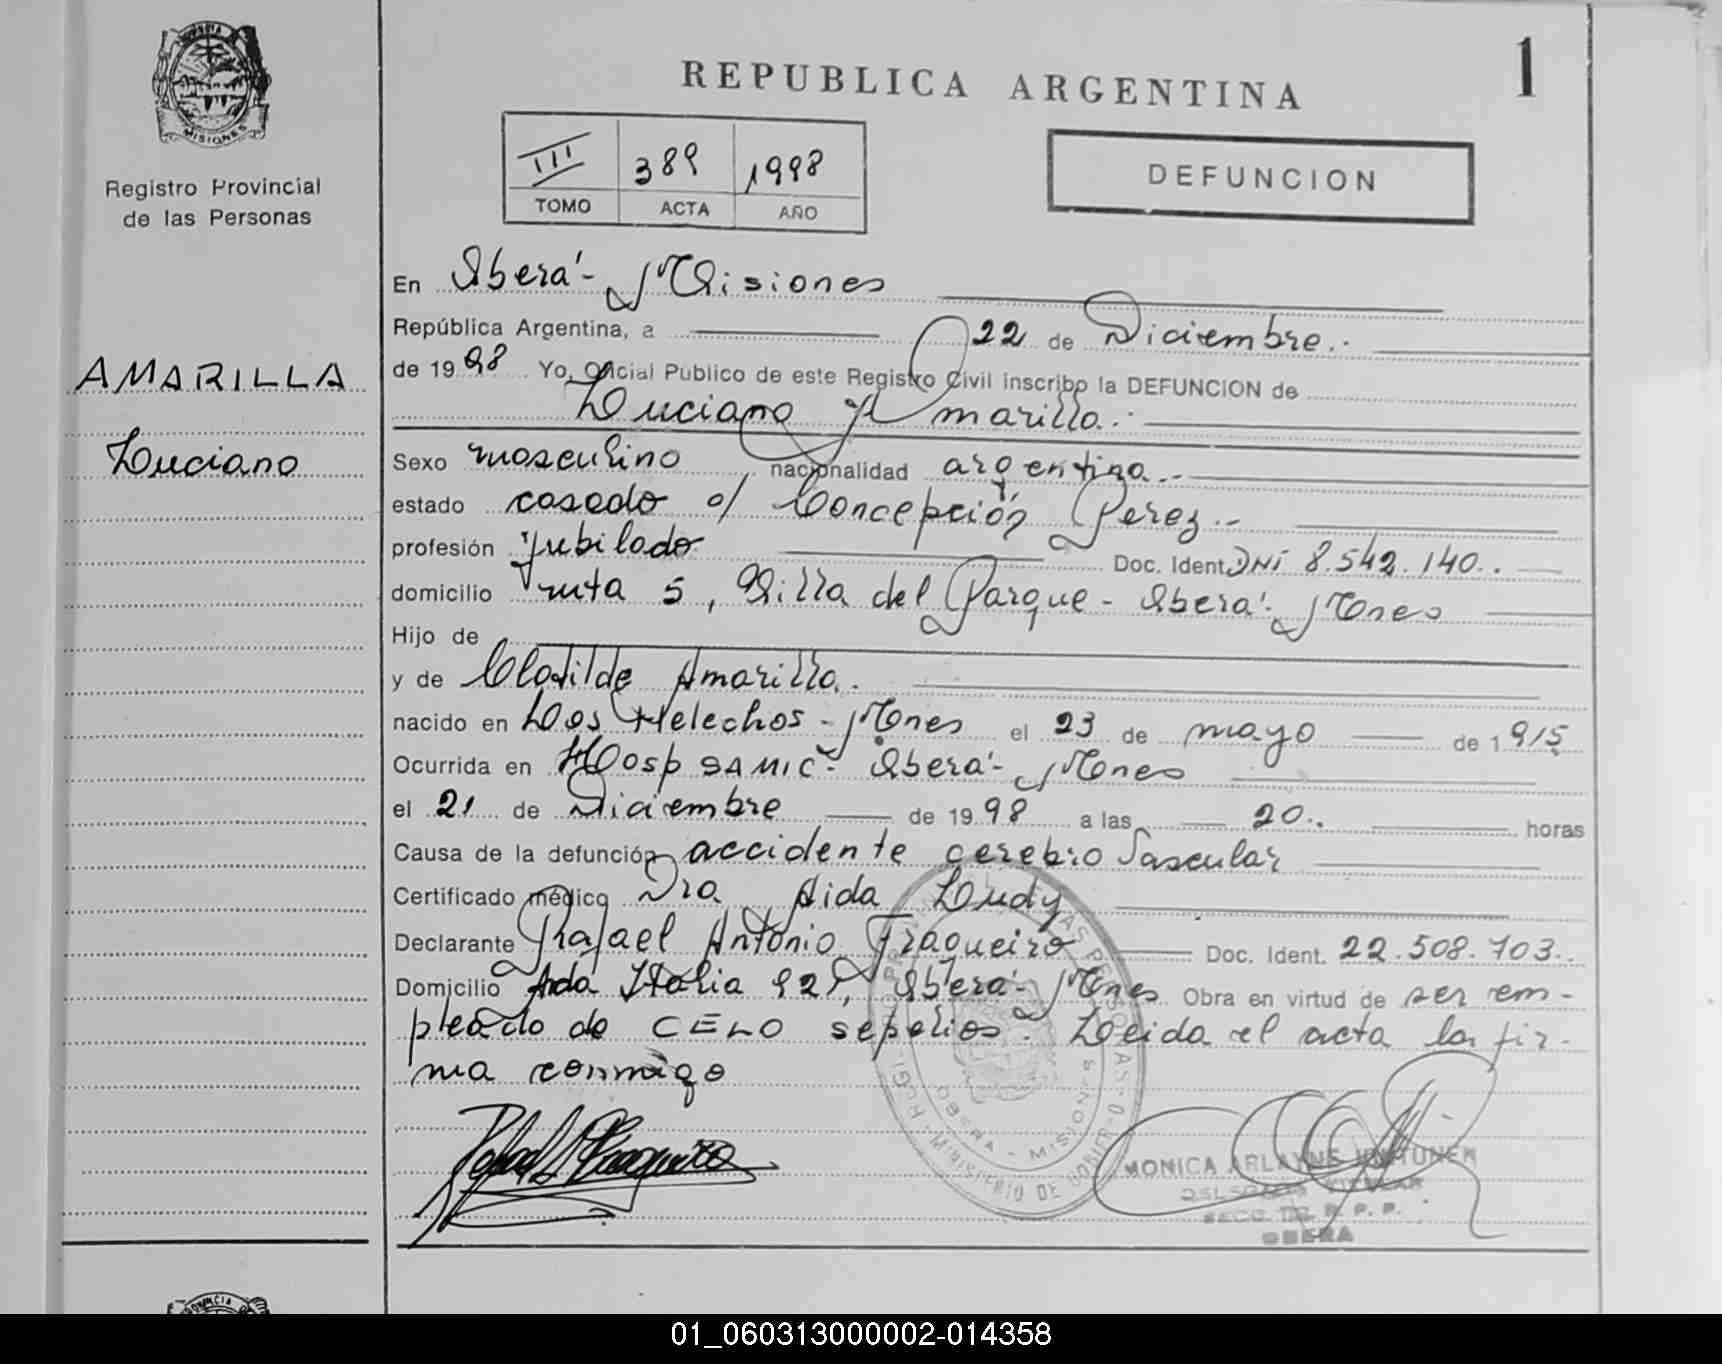 MISIONES
Registro Provincial
de las Personas
AMARILLA
Luciano
REPUBLICA ARGENTINA
1
III 389 1998
TOMO ACTA AÑO
DEFUNCION
En Oberá - Misiones
República Argentina, a 22 de Diciembre.-
de 1998 Yo, Oficial Publico de este Registro Civil inscribo la DEFUNCION de
Luciano Amarilla.-
Sexo masculino nacionalidad argentina.-
estado casado c/ Concepción Perez.-
profesión jubilado Doc. Ident. DNI 8.542.140..
domicilio ruta 5, Villa del Parque - Oberá - Mnes
Hijo de
y de Clotilde Amarilla.
nacido en Los Helechos - Mnes el 23 de mayo de 1915
Ocurrida en Hosp SAMIC - Oberá - Mnes
el 21 de Diciembre de 1998 a las 20.. horas
Causa de la defunción accidente cerebro vascular
Certificado médico Dra Aida Ludy
Declarante Rafael Antonio Fraqueiro Doc. Ident. 22.508.703..
Domicilio Avda Italia 929, Oberá - Mnes Obra en virtud de ser em-
pleado de CELO sepelios. Leida el acta la fir-
ma conmigo
OBERA - MISIONES
MONICA ARLAYNE
TITULAR
SECC. R. P. P.
OBERA
01_060313000002-014358